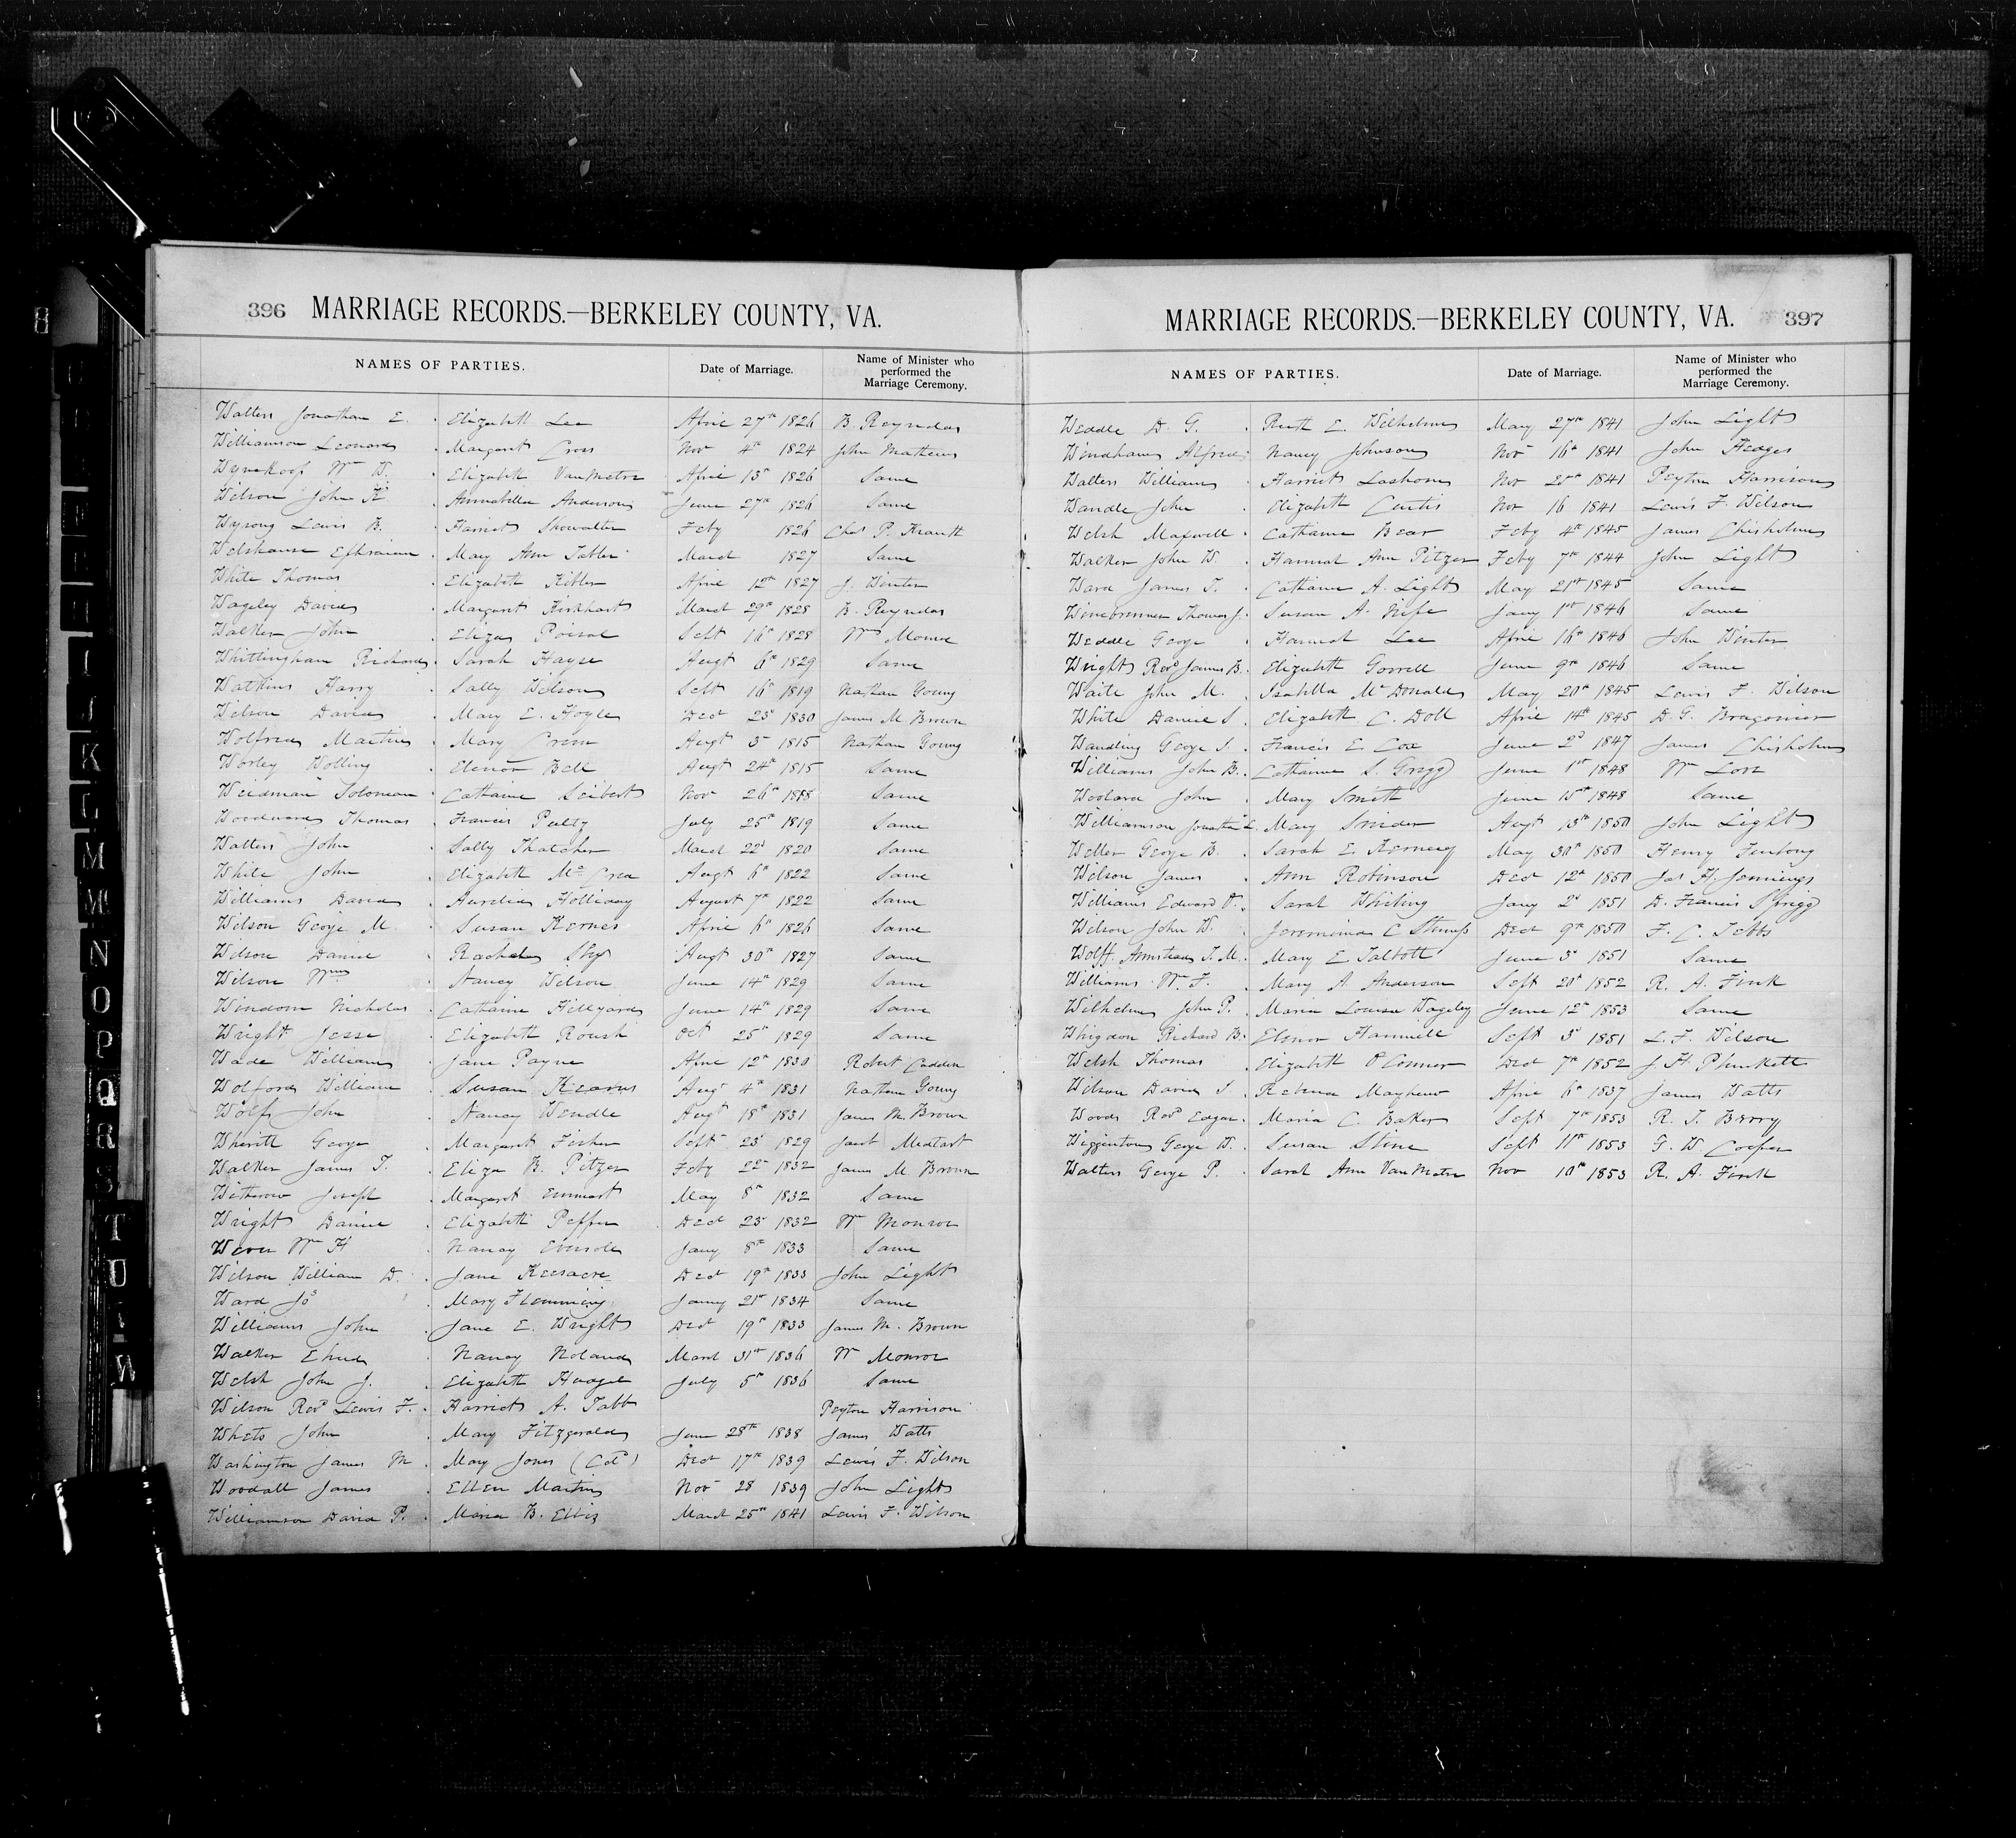 396 MARRIAGE RECORDS.—BERKELEY COUNTY, VA.
NAMES OF PARTIES. Date of Marriage. Name of Minister who performed the Marriage Ceremony.
Walters Jonathan E. Elizabeth Lee April 27th 1826 B. Reynolds
Williamson Leonard Margaret Cross Nov 4th 1824 John Mathews
Wynkoop Wm D. Elizabeth VanMetre April 13th 1826 Same
Wilson John K. Annabella Anderson June 27th 1826 Same
Wysong Lewis B. Harriet Showalter Feby 1826 Chas P. Krauth
Welshanse Ephraim Mary Ann Tabler March 1827 Same
White Thomas Elizabeth Kibler April 12th 1827 J. Winter
Wageley David Margaret Kirkhart March 29th 1828 B. Reynolds
Walker John Eliza Poisal Sept 16th 1828 Wm Monroe
Whittingham Richard Sarah Hayse Augt 6th 1829 Same
Watkins Harry Sally Wilson Sept 16th 1819 Nathan Young
Wilson David Mary E. Hoyle Dec 23d 1830 James M Brown
Wolfred Martin Mary Crim Augt 5 1815 Nathan Young
Worley Wolling Elenor Bell Augt 24th 1815 Same
Weidman Soloman Catharine Seibert Nov 26th 1818 Same
Woodward Thomas Francis Pultz July 25th 1819 Same
Walters John Sally Thatcher March 22d 1820 Same
While John Elizabeth Mc Crea Augt 6th 1822 Same
Williams David Aurelia Holliday August 7th 1822 Same
Wilson George M. Susan Kernes April 6th 1826 Same
Wilson Daniel Rachel Shy Augt 30th 1827 Same
Wilson Wm Nancy Wilson June 14th 1829 Same
Windom Nicholas Catharine Hillyard June 14th 1829 Same
Wright Jesse Elizabeth Roush Oct 25th 1829 Same
Wade William Jane Payne April 12th 1830 Robert Cadden
Wolford William Susan Kearns Augt 4th 1831 Nathan Young
Wolff John Nancy Wendle Augt 18th 1831 James M. Brown
Wheritt George Margaret Fisher Sept 23d 1829 Jacob Medtart
Walker James T. Eliza B. Pitzer Feby 22d 1832 James M Brown
Witherow Joseph Margaret Emmert May 8th 1832 Same
Wright Daniel Elizabeth Peffer Dec 23d 1832 Wm Monroe
Wever Wm H Nancy Eversole Jany 8th 1833 Same
Wilson William D. Jane Keesacre Dec 19th 1833 John Light
Ward Jos Mary Flemming Janry 21st 1834 Same
Williams John Jane E. Wright Dec 19th 1833 James M. Brown
Walker Ehud Nancy Noland March 31st 1836 Wm Monroe
Welsh John J. Elizabeth Hudgel July 5th 1836 Same
Wilson Revd Lewis F. Harriet A. Tabb Peyton Harrison
Whets John Mary Fitzgerald June 28th 1838 James Watts
Washington James M Mary Jones (Cold) Dec 17th 1839 Lewis F. Wilson
Woodall James Ellen Martin Nov 28 1839 John Light
Williamson David P. Maria B. Ellis March 25th 1841 Lewis F. Wilson
MARRIAGE RECORDS.—BERKELEY COUNTY, VA. 397
NAMES OF PARTIES. Date of Marriage. Name of Minister who performed the Marriage Ceremony.
Weddle D. G. Ruth E. Wilhelm May 27th 1841 John Light
Windham Alfred Nancy Johnson Nov 16th 1841 John Hedges
Walters William Harriet Lashorn Nov 25th 1841 Peyton Harrison
Wandle John Elizabeth Curtis Nov 16 1841 Lewis F. Wilson
Welsh Maxwell Catharine Bear Feby 4th 1845 James Chisholm
Walker John W. Hannah Ann Pitzer Feby 7th 1844 John Light
Ward James T. Catharine A. Light May 21st 1845 Same
Winebrenner Thomas J. Susan A. Nipe Jany 1st 1846 Same
Weddle George Hannah Lee April 16th 1846 John Winter
Wright Revd James B. Elizabeth Gorrell June 9th 1846 Same
Waite John M. Isabella Mc Donald May 20th 1845 Lewis F. Wilson
White Daniel S. Elizabeth C. Doll April 14th 1845 D. G. Bragonier
Wandling George S. Francis E Cox June 2d 1847 James Chisholm
Williams John B. Catharine S. Gregg June 1st 1848 Wm Love
Woolard John Mary Smith June 15th 1848 Same
Williamson Jonathan L. Mary Snider Augt 13th 1850 John Light
Weller George B. Sarah E. Kerney May 30th 1850 Henry Furlong
Wilson James Ann Robinson Dec 12th 1850 Jas H. Jennings
Williams Edward V. Sarah Whiting Jany 2d 1851 D. Francis Sprigg
Wilson John W. Jeremima C Stump Dec 9th 1850 F. C. Tebbs
Wolff Armstead T. M. Mary E Talbott June 3d 1851 Same
Williams Wm F. Mary A Anderson Sept 20th 1852 R. A. Fink
Wilhelm John P. Maria Louisa Wageley June 12th 1853 Same
Whigdon Richard B. Elenor Hammill Sept 3d 1851 L. F. Wilson
Welsh Thomas Elizabeth O'Connor Dec 7th 1852 J. H. Plunkett
Wilson David S. Rebecca Mayhew April 6th 1837 James Watts
Woods Revd Edgar Maria C. Baker Sept 7th 1853 R. T. Berry
Wigginton George W. Susan Stine Sept 11th 1853 G. W Cooper
Walters George P. Sarah Ann VanMetre Nov 10th 1853 R. A. Fink
I
J
K
M
N
O
P
Q
R
S
T
U
W